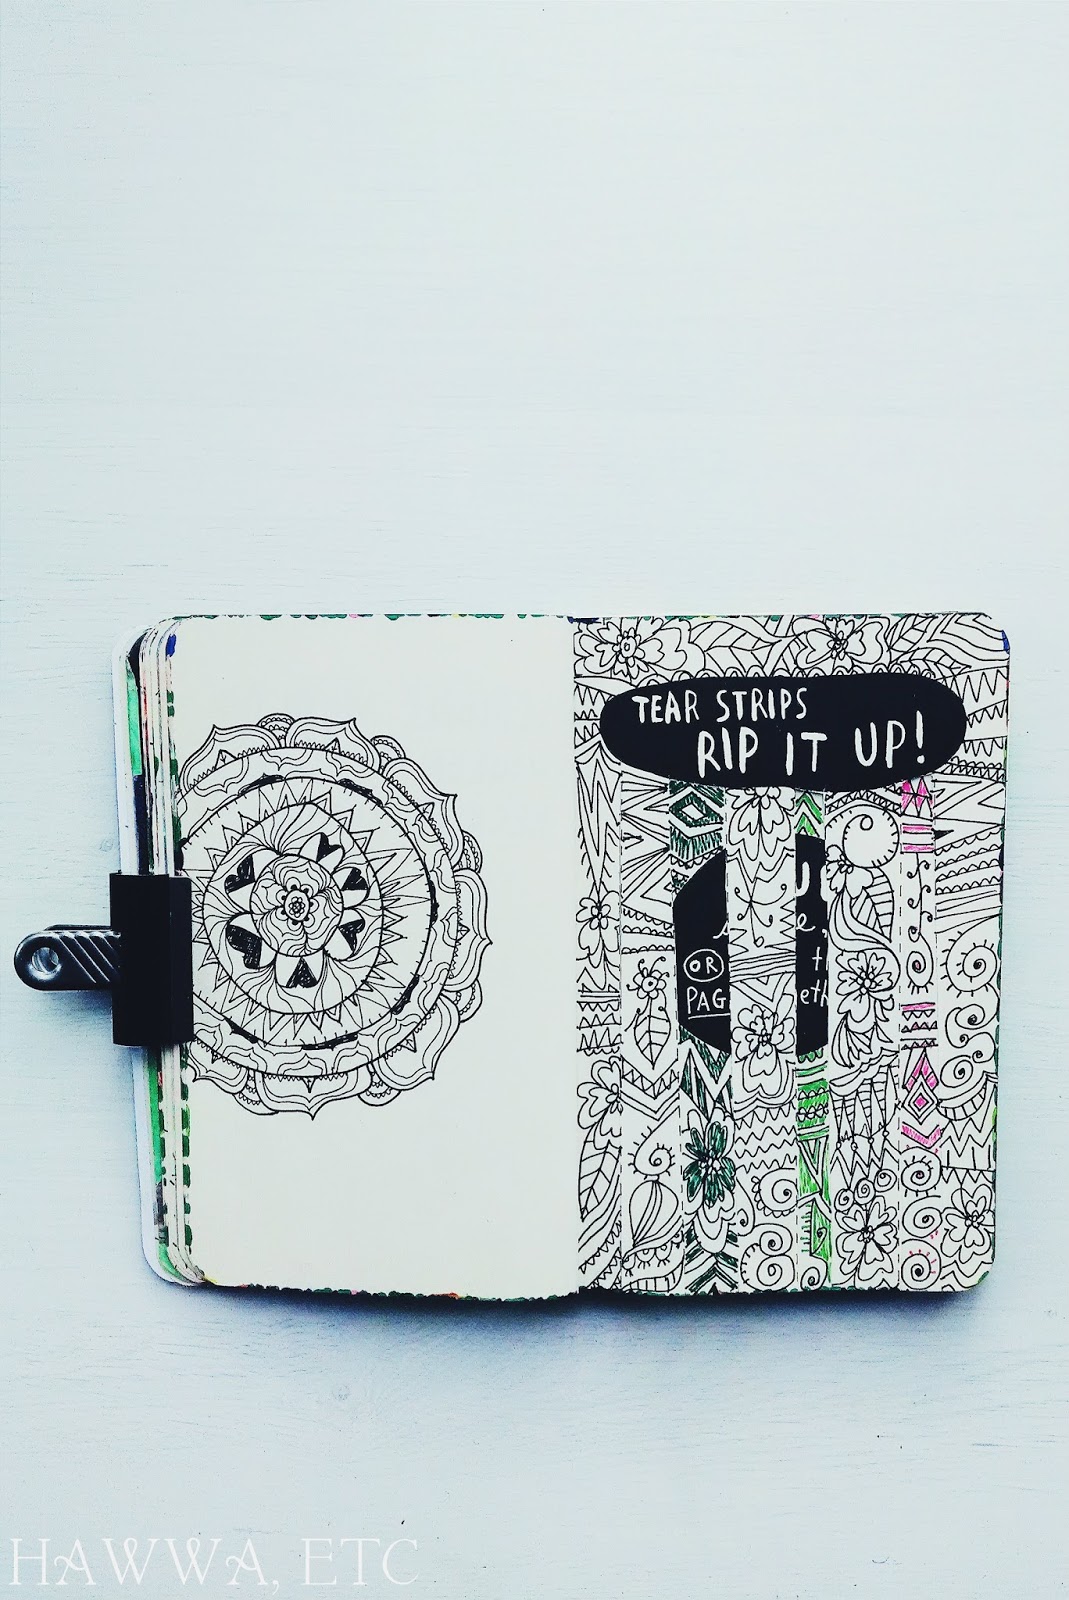 TEAR STRIPS
RIP IT UP!
OR
PAG
HAWWA, ETC